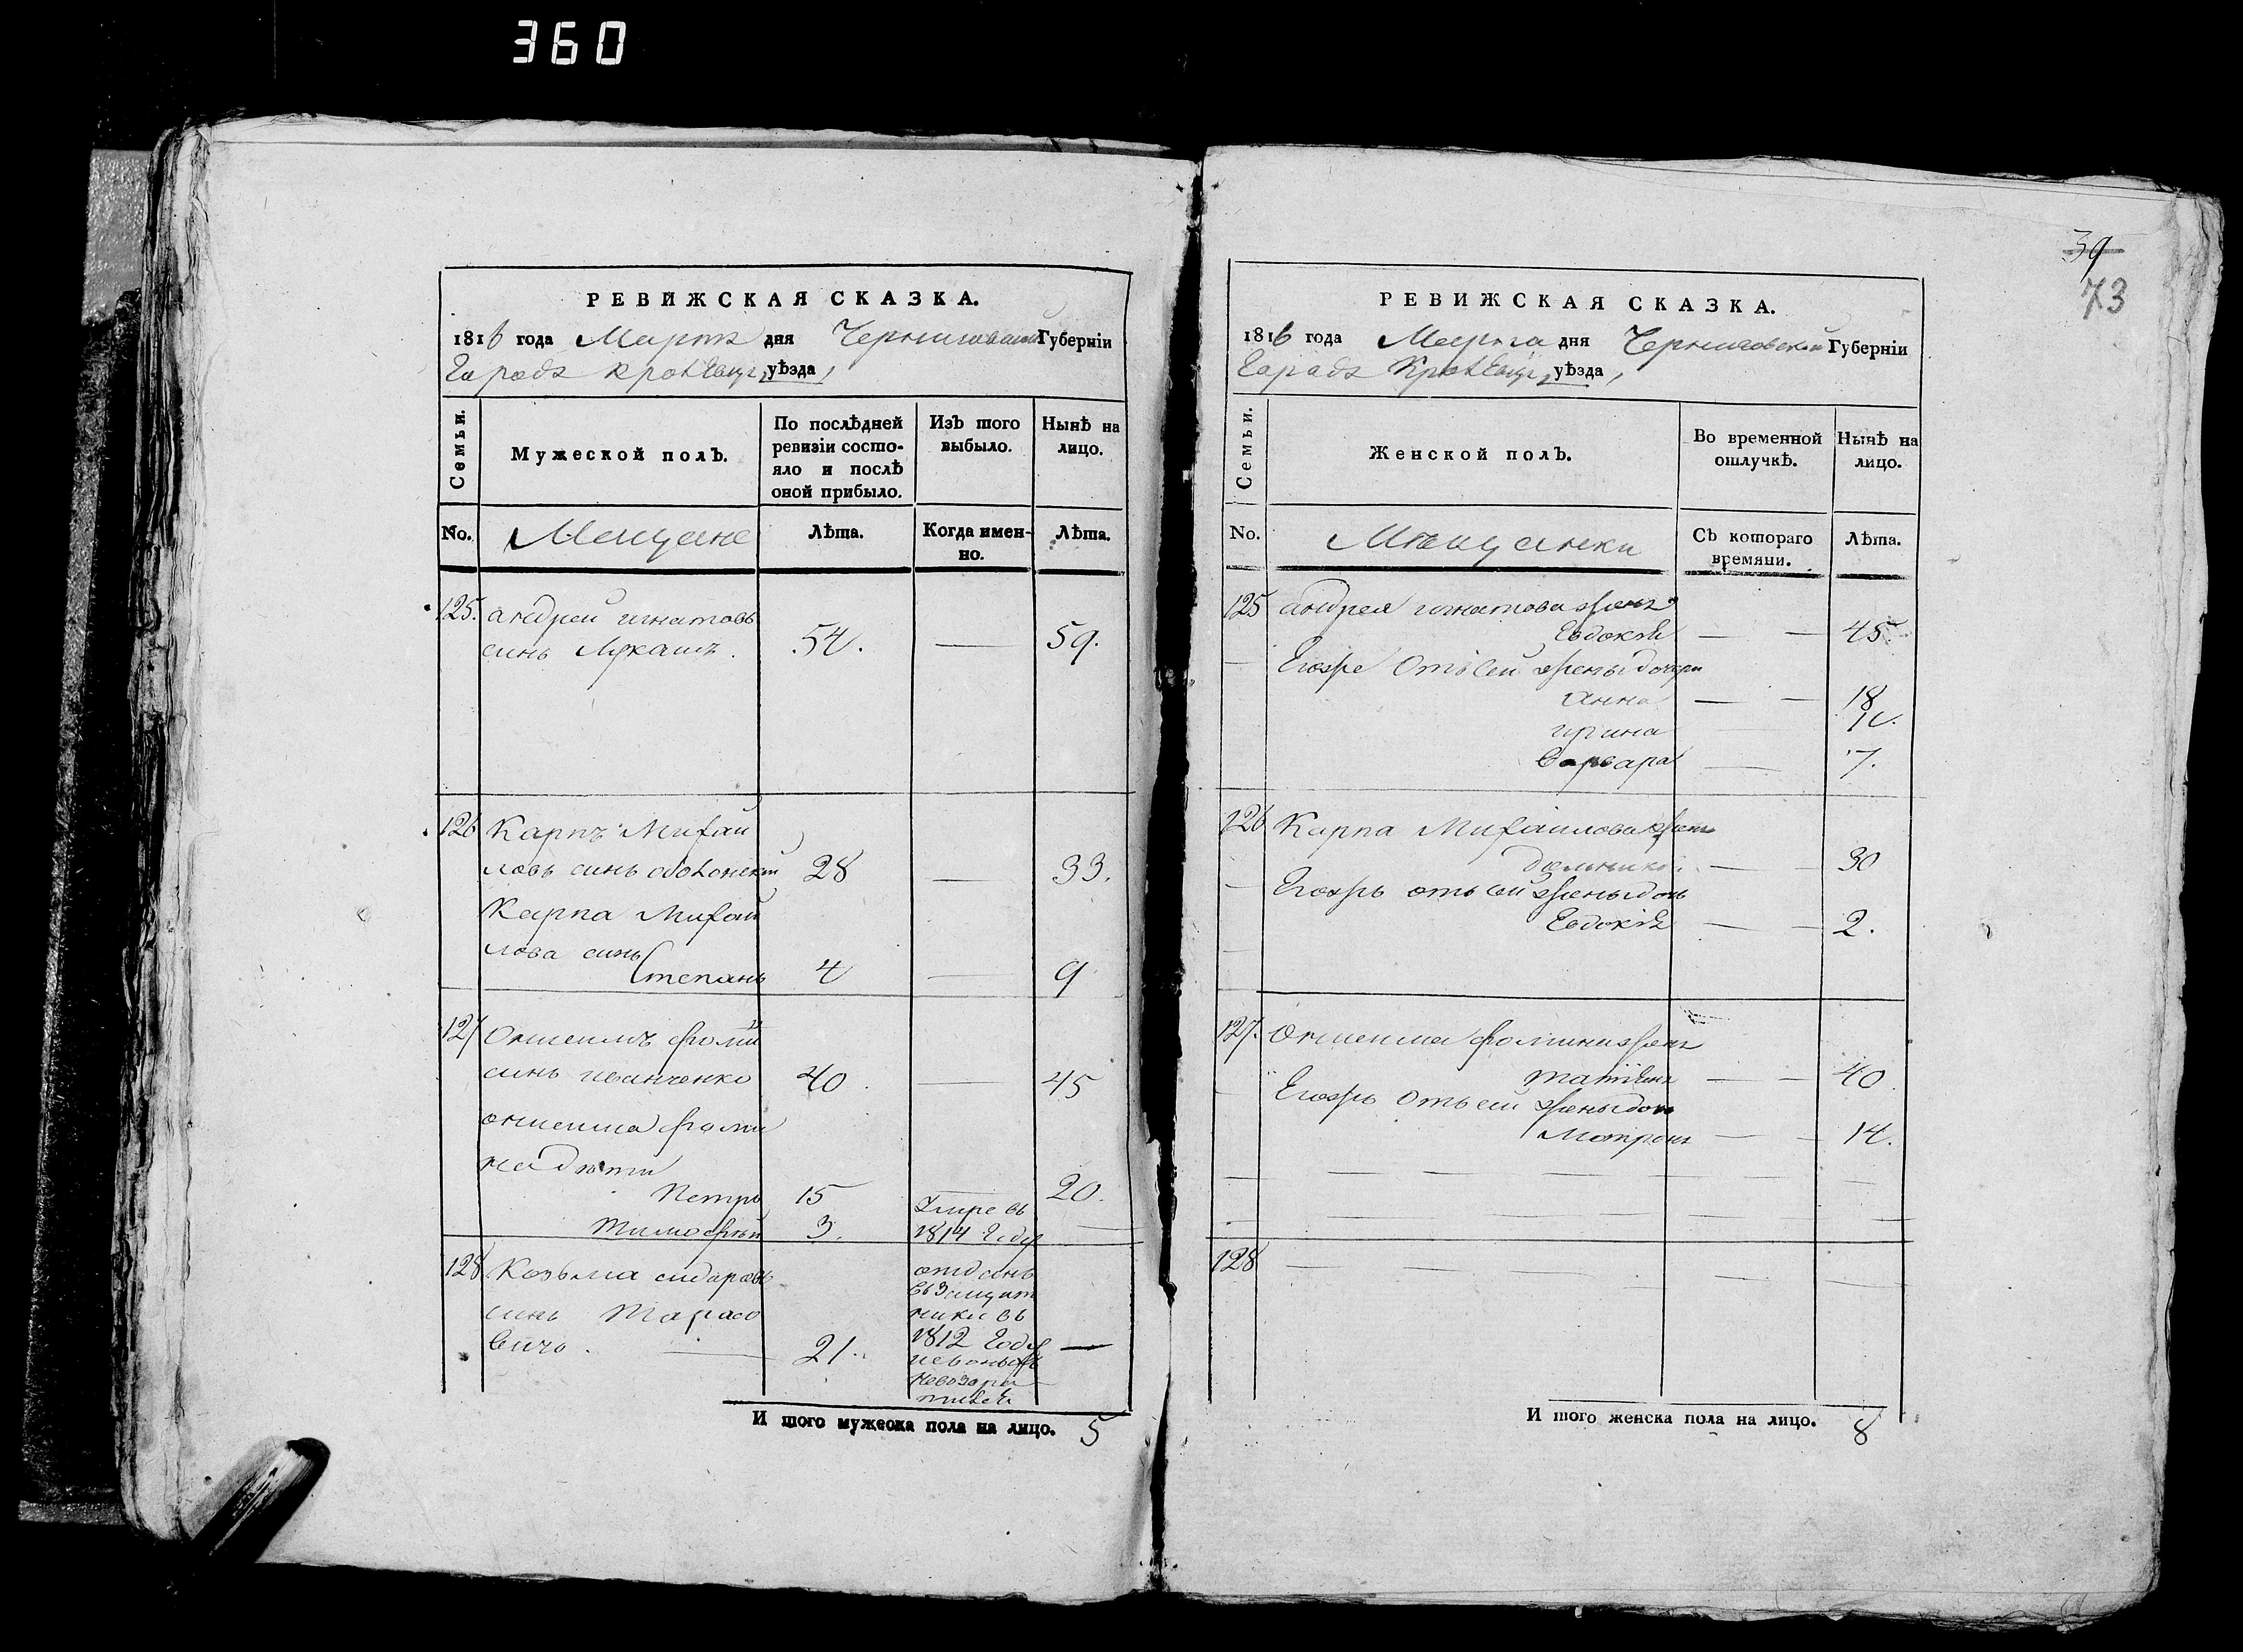 360
РЕВИЖСКАЯ СКАЗКА.
1816 года Марта дня Черниговской Губерніи
Города уѣзда
Семьи.
Мужеской полъ.
По послѣдней ревизіи состояло и послѣ оной прибыло.
Изъ того выбыло.
Нынѣ на лицо.
No. Мещане Лѣта. Когда именно. Лѣта.
125. андрей игнатовъ
синъ Лукашъ. 54. — 59.
126 Карпъ Михай
ловъ синъ 28 — 33.
Карпа Михай
лова синъ
Степанъ 4 — 9
127 фоми
синъ иванченко 40 — 45
фоми
на дѣти
Петръ 15 — 20.
Тимофей 3. Умре въ 1814 году —
128 Козьма сидоровъ
синъ Тарасо
вичъ. 21. отданъ
въ
въ
1812 году —
И того мужеска пола на лицо. 5
39
73
РЕВИЖСКАЯ СКАЗКА.
1816 года Марта дня Черниговской Губерніи
Города уѣзда
Семьи.
Женской полъ.
Во временной отлучкѣ.
Нынѣ на лицо.
No. Мѣщанки Съ котораго времяни. Лѣта.
125 андрея игнатова жена
Евдокія — — 45.
Егоже отъ сей жены дочери
анна — — 18
ирина —
варвара — 7.
126 Карпа Михайлова жена
— — 30
Егожъ отъ сей жены дочь
Евдокія — — 2.
127. фомини жена
татіяна — — 40
Егожъ отъ сей жены дочь
Мотрона — — 14.
128 — — — —
И того женска пола на лицо. 8